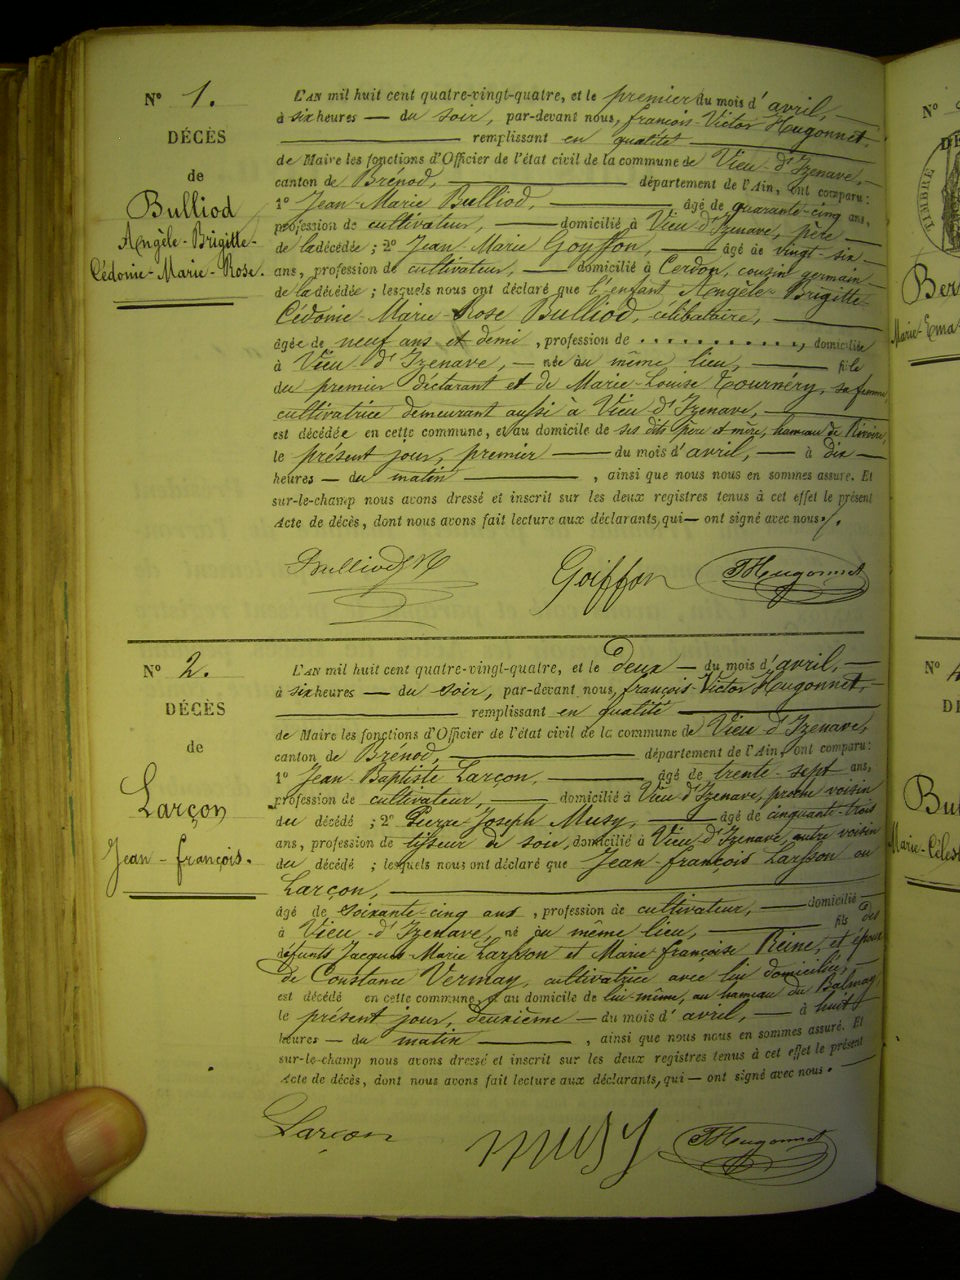 N° 1.
DÉCÈS
de
Bulliod
Angèle-Brigitte-
Cédonie-Marie-Rose.
L'AN mil huit cent quatre-vingt-quatre, et le premier du mois d'avril,
à six heures — du soir, par-devant nous, françois-Victor Hugonnet,
remplissant en qualité
de Maire les fonctions d'Officier de l'état civil de la commune de Vieu-d'Izenave,
canton de Brénod, département de l'Ain, ont comparu:
1° Jean-Marie Bulliod, âgé de quarante-cinq ans,
profession de cultivateur, domicilié à Vieu d'Izenave, père
de la décédée ; 2° Jean-Marie Goyffon, âgé de vingt-six
ans, profession de cultivateur, domicilié à Cerdon, cousin germain
de la décédée ; lesquels nous ont déclaré que l'enfant Angèle-Brigitte
Cédonie-Marie-Rose Bulliod, célibataire,
âgée de neuf ans et demi, profession de . . . . . . . . . . . , domiciliée
à Vieu d'Izenave, — née au même lieu, — fille
du premier déclarant et de Marie-Louise Tournéry, sa femme,
cultivatrice demeurant aussi à Vieu d'Izenave,
est décédée en cette commune, et au domicile de ses dits père et mère, hameau de
le présent jour, premier — du mois d'avril, — à dix
heures — du matin , ainsi que nous nous en sommes assuré. Et
sur-le-champ nous avons dressé et inscrit sur les deux registres tenus à cet effet le présent
Acte de décès, dont nous avons fait lecture aux déclarants, qui — ont signé avec nous.
Bulliod JM Goiffon Hugonnet
N° 2.
DÉCÈS
de
Larçon
Jean-françois.
L'AN mil huit cent quatre-vingt-quatre, et le Deux — du mois d'avril,
à six heures — du soir, par-devant nous, françois-Victor Hougonnet,
remplissant en qualité
de Maire les fonctions d'Officier de l'état civil de la commune de Vieu d'Izenave,
canton de Brénod, département de l'Ain, ont comparu:
1° Jean-Baptiste Larçon, âgé de trente-sept ans,
profession de cultivateur, domicilié à Vieu d'Izenave, proche voisin
du décédé ; 2° Pierre-Joseph Musy, âgé de cinquante-trois
ans, profession de tisseur de soie, domicilié à Vieu-d'Izenave, autre voisin
du décédé ; lesquels nous ont déclaré que Jean-françois Larsson ou
Larçon,
âgé de soixante-cinq ans, profession de cultivateur, domicilié
à Vieu-d'Izenave, né au même lieu, fils des
défunts Jacques-Marie Larsson et Marie-françoise Reine, et époux
de Constance Vermay, cultivatrice avec lui domiciliée,
est décédé en cette commune, et au domicile de lui-même, au hameau du Balmay
le présent jour, deuxième — du mois d'avril, — à huit
heures — du matin , ainsi que nous nous en sommes assuré. Et
sur-le-champ nous avons dressé et inscrit sur les deux registres tenus à cet effet le présent
Acte de décès, dont nous avons fait lecture aux déclarants, qui — ont signé avec nous.
Larçon musy Hugonnet
N°
TIMBRE
Marie-
N° 4